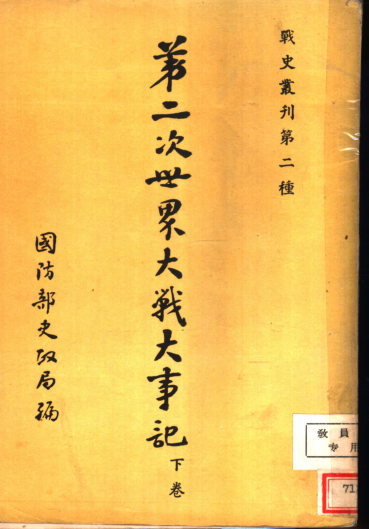 戰史叢刊第二種
第二次世界大戰大事記
下卷
國防部史政局編
教員
专用
71